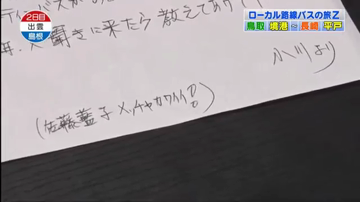 2日目
出雲
島根
ローカル路線バスの旅Z
鳥取 境港 〜 長崎 平戸
来たら教えてあげ
聞きに
小川より
(佐藤藍子メッチャカワイイ!!)